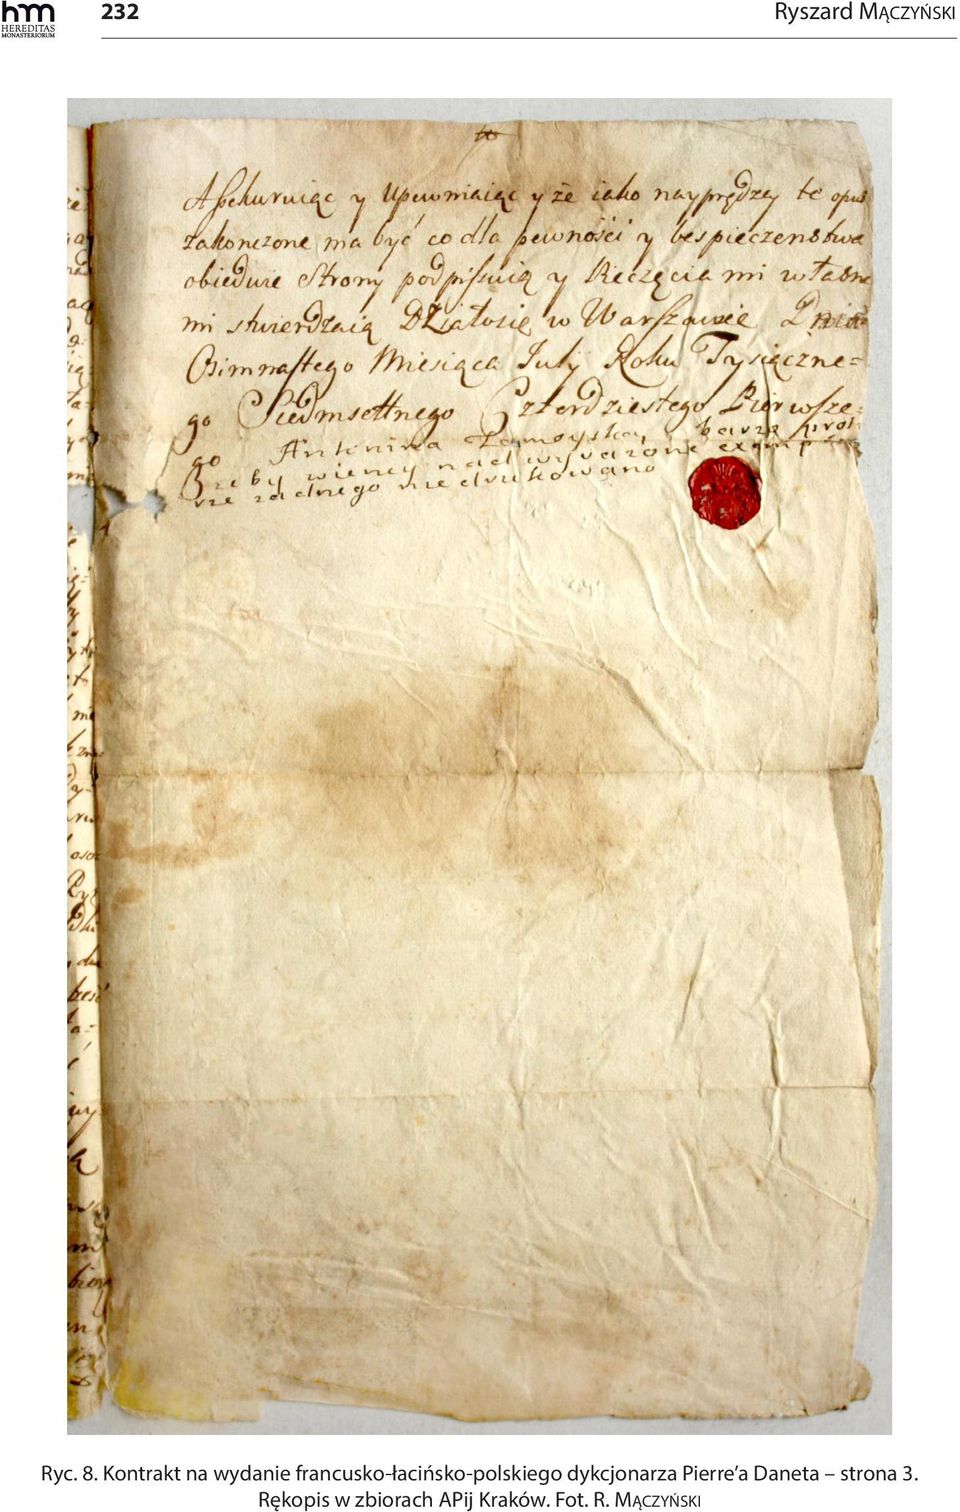 hm
HEREDITAS
MONASTERIORUM
232
Ryszard MĄCZYŃSKI
Aszekuruiąc y Upewniaiąc y że iako nayprędzey te opus
zakonczone ma być co dla pewności y bespieczenstwa
obiedwie Strony podpisuią y Pieczęcia mi własne
mi stwierdzaią Działosię w Warszawie Dnia
Osimnastego Miesiąca Julij Roku Tysiączne=
go Siedmsettnego Czterdziestego Pierwsze=
go Antonina Zamoyska
Zeby wiency nad wyrazone exemp
rze zadnego nie drukowano
Ryc. 8. Kontrakt na wydanie francusko-łacińsko-polskiego dykcjonarza Pierre'a Daneta – strona 3.
Rękopis w zbiorach APij Kraków. Fot. R. MĄCZYŃSKI